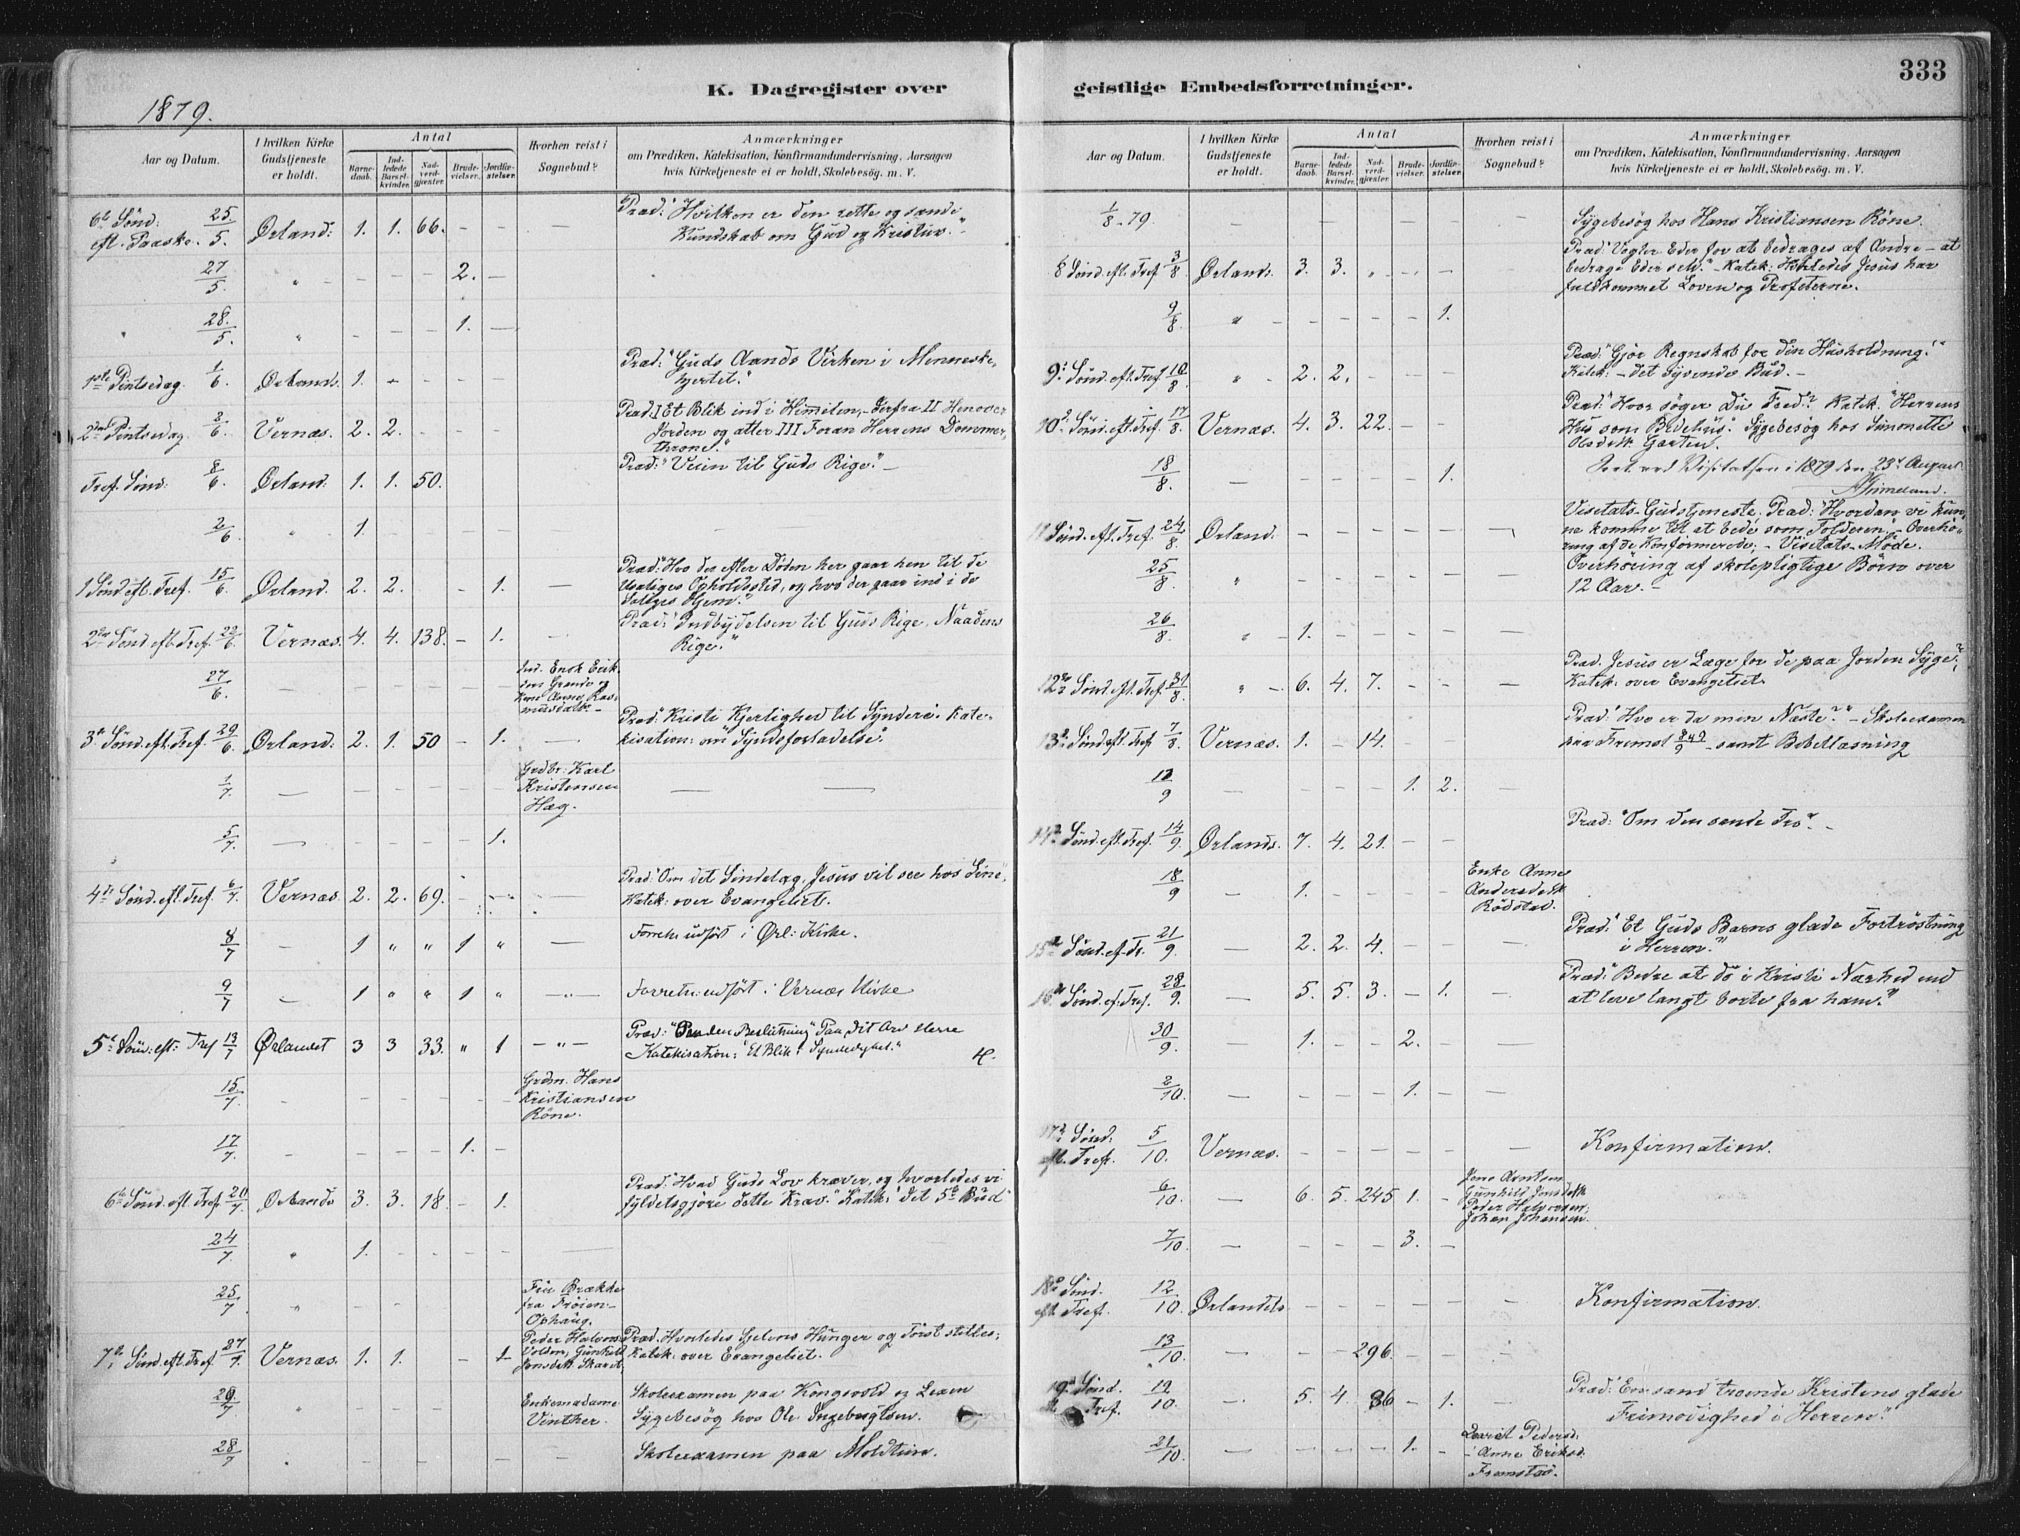 333
K. Dagregister over geistlige Embedsforretninger.
1879.
Aar og Datum.
I hvilken Kirke Gudstjeneste er holdt.
Antal
Barne-daab.
Ind-ledede Barsel-kvinder.
Nad-verd-gjæster.
Brude-vielser.
Jordfæ-stelser.
Hvorhen reist i Sognebud?
Anmærkninger
om Prædiken, Katekisation, Konfirmandundervisning, Aarsagen
hvis Kirketjeneste ei er holdt, Skolebesög. m. V.
6te Sönd: eft. Paaske. 25/5. Ørland: 1. 1. 66. - - - Præd: "Hvilken er den rette og sande
Kundskab om Gud og Kristus."
27/5. " - - - 2. -
" 28./5. " - - - 1. -
1ste Pintsedag. 1/6. Ørlands. 1. - - - - Præd: "Guds Aands Virken i Menneske-
hjertet."
2den Pintsedag 2/6. Vernæs. 2. 2. Præd: I Et Blik ind i Himilen, - derfra II Henover
Jorden og atter III Foran Herrens Dommer-
throne."
Tref. Sönd: 8/6. Ørland: 1. 1. 50. Præd: "Veien til Guds Rige." -
2/6. " 1. - - - -
1 Sönd. eft. Tref. 15/6. Ørland. 2. 2. - 1. - Præd: "Hvo der efter Döden her gaar hen til de
Usaliges Opholdssted, og hvo der gaar ind i de
Saliges Hjem."
2den Sönd. eft. Tref. 22/6. Vernæs. 4. 4. 138. - 1. - Præd: "Indbydelsen til Guds Rige, Naadens
Rige."
27/6. - - - - - - Enok Erik-
sen Grande og
Kone Anne Ras-
musdatr. -
3die Sönd. eft. Tref. 29/6. Ørland: 2. 1. 50 - 1. - Præd. "Kristi Kjerlighed til Syndere". Kate-
kisation: om "Syndsforladelse".
1/7. - - - - - - Grdbr: Karl
Kristensen
Hæg. - -
5/7. - - - - - 1.
4de Sönd. eft. Tref. 6/7. Vernæs 2. 2. 69. - - - Præd: "Om det Sindelag, Jesus vil see hos Sine".
Katek: over Evangeliet.
8/7 - 1 " " 1 " - Forretn: udført i Ørl: Kirke.
9/7 - 1 " " 1 " -"- Forretn: udført i Vernæs Kirke
5te Sönd: eft: Tref 13/7 Ørlandet 3 3 33. " 1 -"- Præd:
Katekisation: "Et Blik
15/7. - - - - - - Grdm. Hans
Kristiansen
Röne.
17/7. - - - - 1. -
6te Sönd. eft. Tref. 20/7 Ørlands 3. 3. 18. - 1. Præd: "Hvad Guds Lov kræver, og hvorledes vi
fyldestgjöre dette Krav." Katek: det 5te Bud
24/7. " 1. - - - - -
25/7 " - - - - - Fru Brække
fra Fröien-
Ophaug.
7de Sönd. eft. Tref. 27/7. Vernæs. 1. 1. - 1 Peder Halvors.
Volden, Gunhild
Jonsdatt. Skaret, Præd: Hvorledes Sjelens Hunger og Törst stilles;
Katek: over Evangeliet.
" - - - - - Enkemadame
Vinther. Skoleexamen paa Kongsvold og Leren
Sygebesög hos Ole Ingebrigtsen.
28/7 . - - - - - - Skoleexamen paa Moldtun.
Aar og Datum.
I hvilken Kirke Gudstjeneste er holdt.
Antal
Barne-daab.
Ind-ledede Barsel-kvinder.
Nad-verd-gjæster.
Brude-vielser.
Jordfæ-stelser.
Hvorhen reist i Sognebud?
Anmærkninger
om Prædiken, Katekisation, Konfirmandundervisning, Aarsagen
hvis Kirketjeneste ei er holdt, Skolebesög. m. V.
1/8 - 79. - - - - - - - Sygebesög hos Hans Kristiansen Röne.
8 Sönd. eft. Tref 3/8 Ørlands. 3. 3. " - - Præd: "Vogter Eder for at bedrages af Andre - at
bedrage Eder selv." - Katek: Hvorledes Jesus har
fuldkommet Loven og Profeterne.
9/8. " - - - - - 1.
9de Sönd. eft. Tref. 10/8. " - 2. 2. - - - Præd: "Gjör Regnskab for din Husholdning!"
Katek: - det Syvende Bud. -
10de Sönd. eft. Tref. 17/8. Vernæs. 4. 3. 22. - - Præd: "Hvor söger Du Fred?" Katek. "Herrens
Hus som Bedehus." Sygebesög hos Simonette
Olsdatt. Garten.
18/8. - - - - - 1. Seet ved Visitatsen i 1879 den 23de August
Grimelund.
11 Sönd. eft. Tref. 24/8. Ørland. - - - - - - Visitats-Gudstjeneste. Præd: "Hvordan vi kun-
ne komme til at bede som Tolderen", - Overhö-
ring af de Konfirmerede; - Visitats-Möde.
25/8. " - - - - - - Overhöring af skolepligtige Börn over
12 Aar. -
26/8. " - 1. - - - - -
12te Sönd. eft. Tref. 31/8. " - 6. 4. 7. - - - Præd. Jesus er Læge for de paa Jorden Syge",
Katek: over Evangeliet.
13de Sönd. eft. Tref 7/8. Vernæs. 1. - 14. - - Præd: "Hvo er da min Næste?" - Skoleexamen
8 & 9/9 - samt Bibellæsning
9 - - - 1. 2. -
14de Sönd. eft. Tref. 14/9. Ørlands. 7. 4. 21. - - Præd: "Om den sande Tro". -
18/9 - 1. - - - - Enke Anne
Andersdatt
Rödstad.
15de Sönd. ef. Tr. 21/9. - 2. 2. 4. - - - Præd: "Et Guds Barns glade Fortröstning
i Herren."
16de Sönd. ef. Tref. 28/9. - 5. 5. 3. - 1. - Præd: "Bedre at dö i Kristi Nærhed end
at leve langt borte fra ham."
30/9. - 1. - - 2. - -
2/10. - - - - 1. - -
17de Sönd: eft. Tref. 5/10. Vernæs. - - - - - - Konfirmation.
6/10. - 6. 5. 245 1. - Jens Arntsen
Gunhild Jonsdatt
Peder Halvorsen,
Johan Johansen.
7/10. - - - - 3. -
18de Sönd. eft. Tref. 12/10. Ørlandets - - - - - - Konfirmation.
13/10. - - - 296. - - -
19de Sönd. Tref. 12/10. - 5. 4. 36 - 1. - Præd: En sand troende Kristens glade
Frimodighed i Herren."
21/10. - - - - 1. - Pedersd.
- Anne Eriksd.